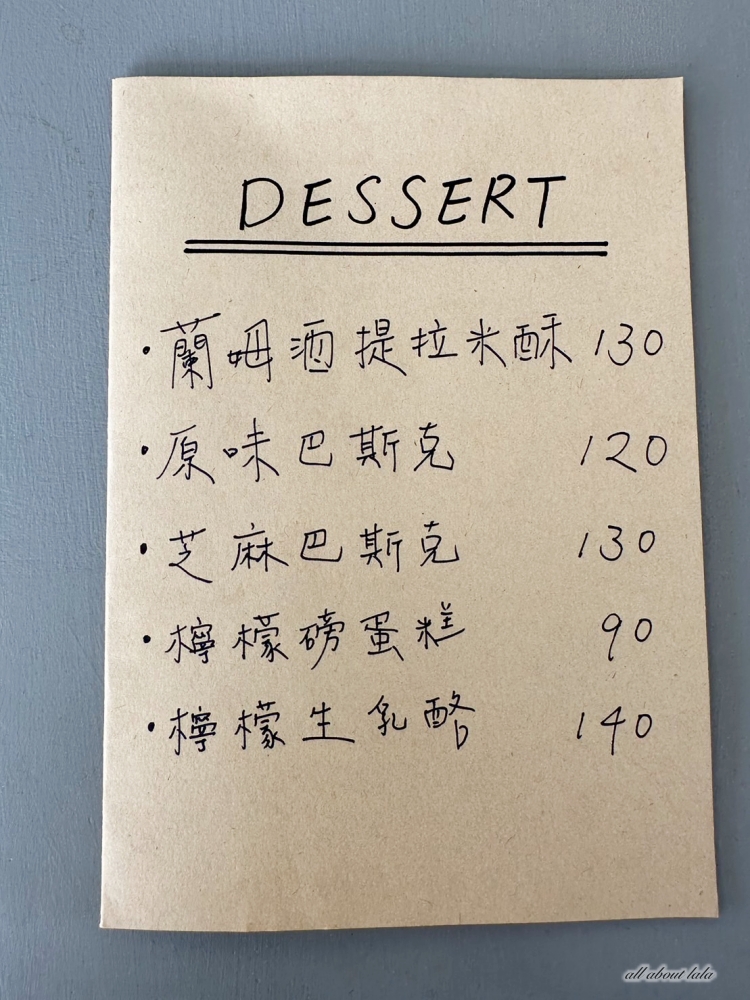 DESSERT
· 蘭姆酒提拉米酥 130
· 原味巴斯克 120
· 芝麻巴斯克 130
· 檸檬磅蛋糕 90
· 檸檬生乳酪 140
all about lala